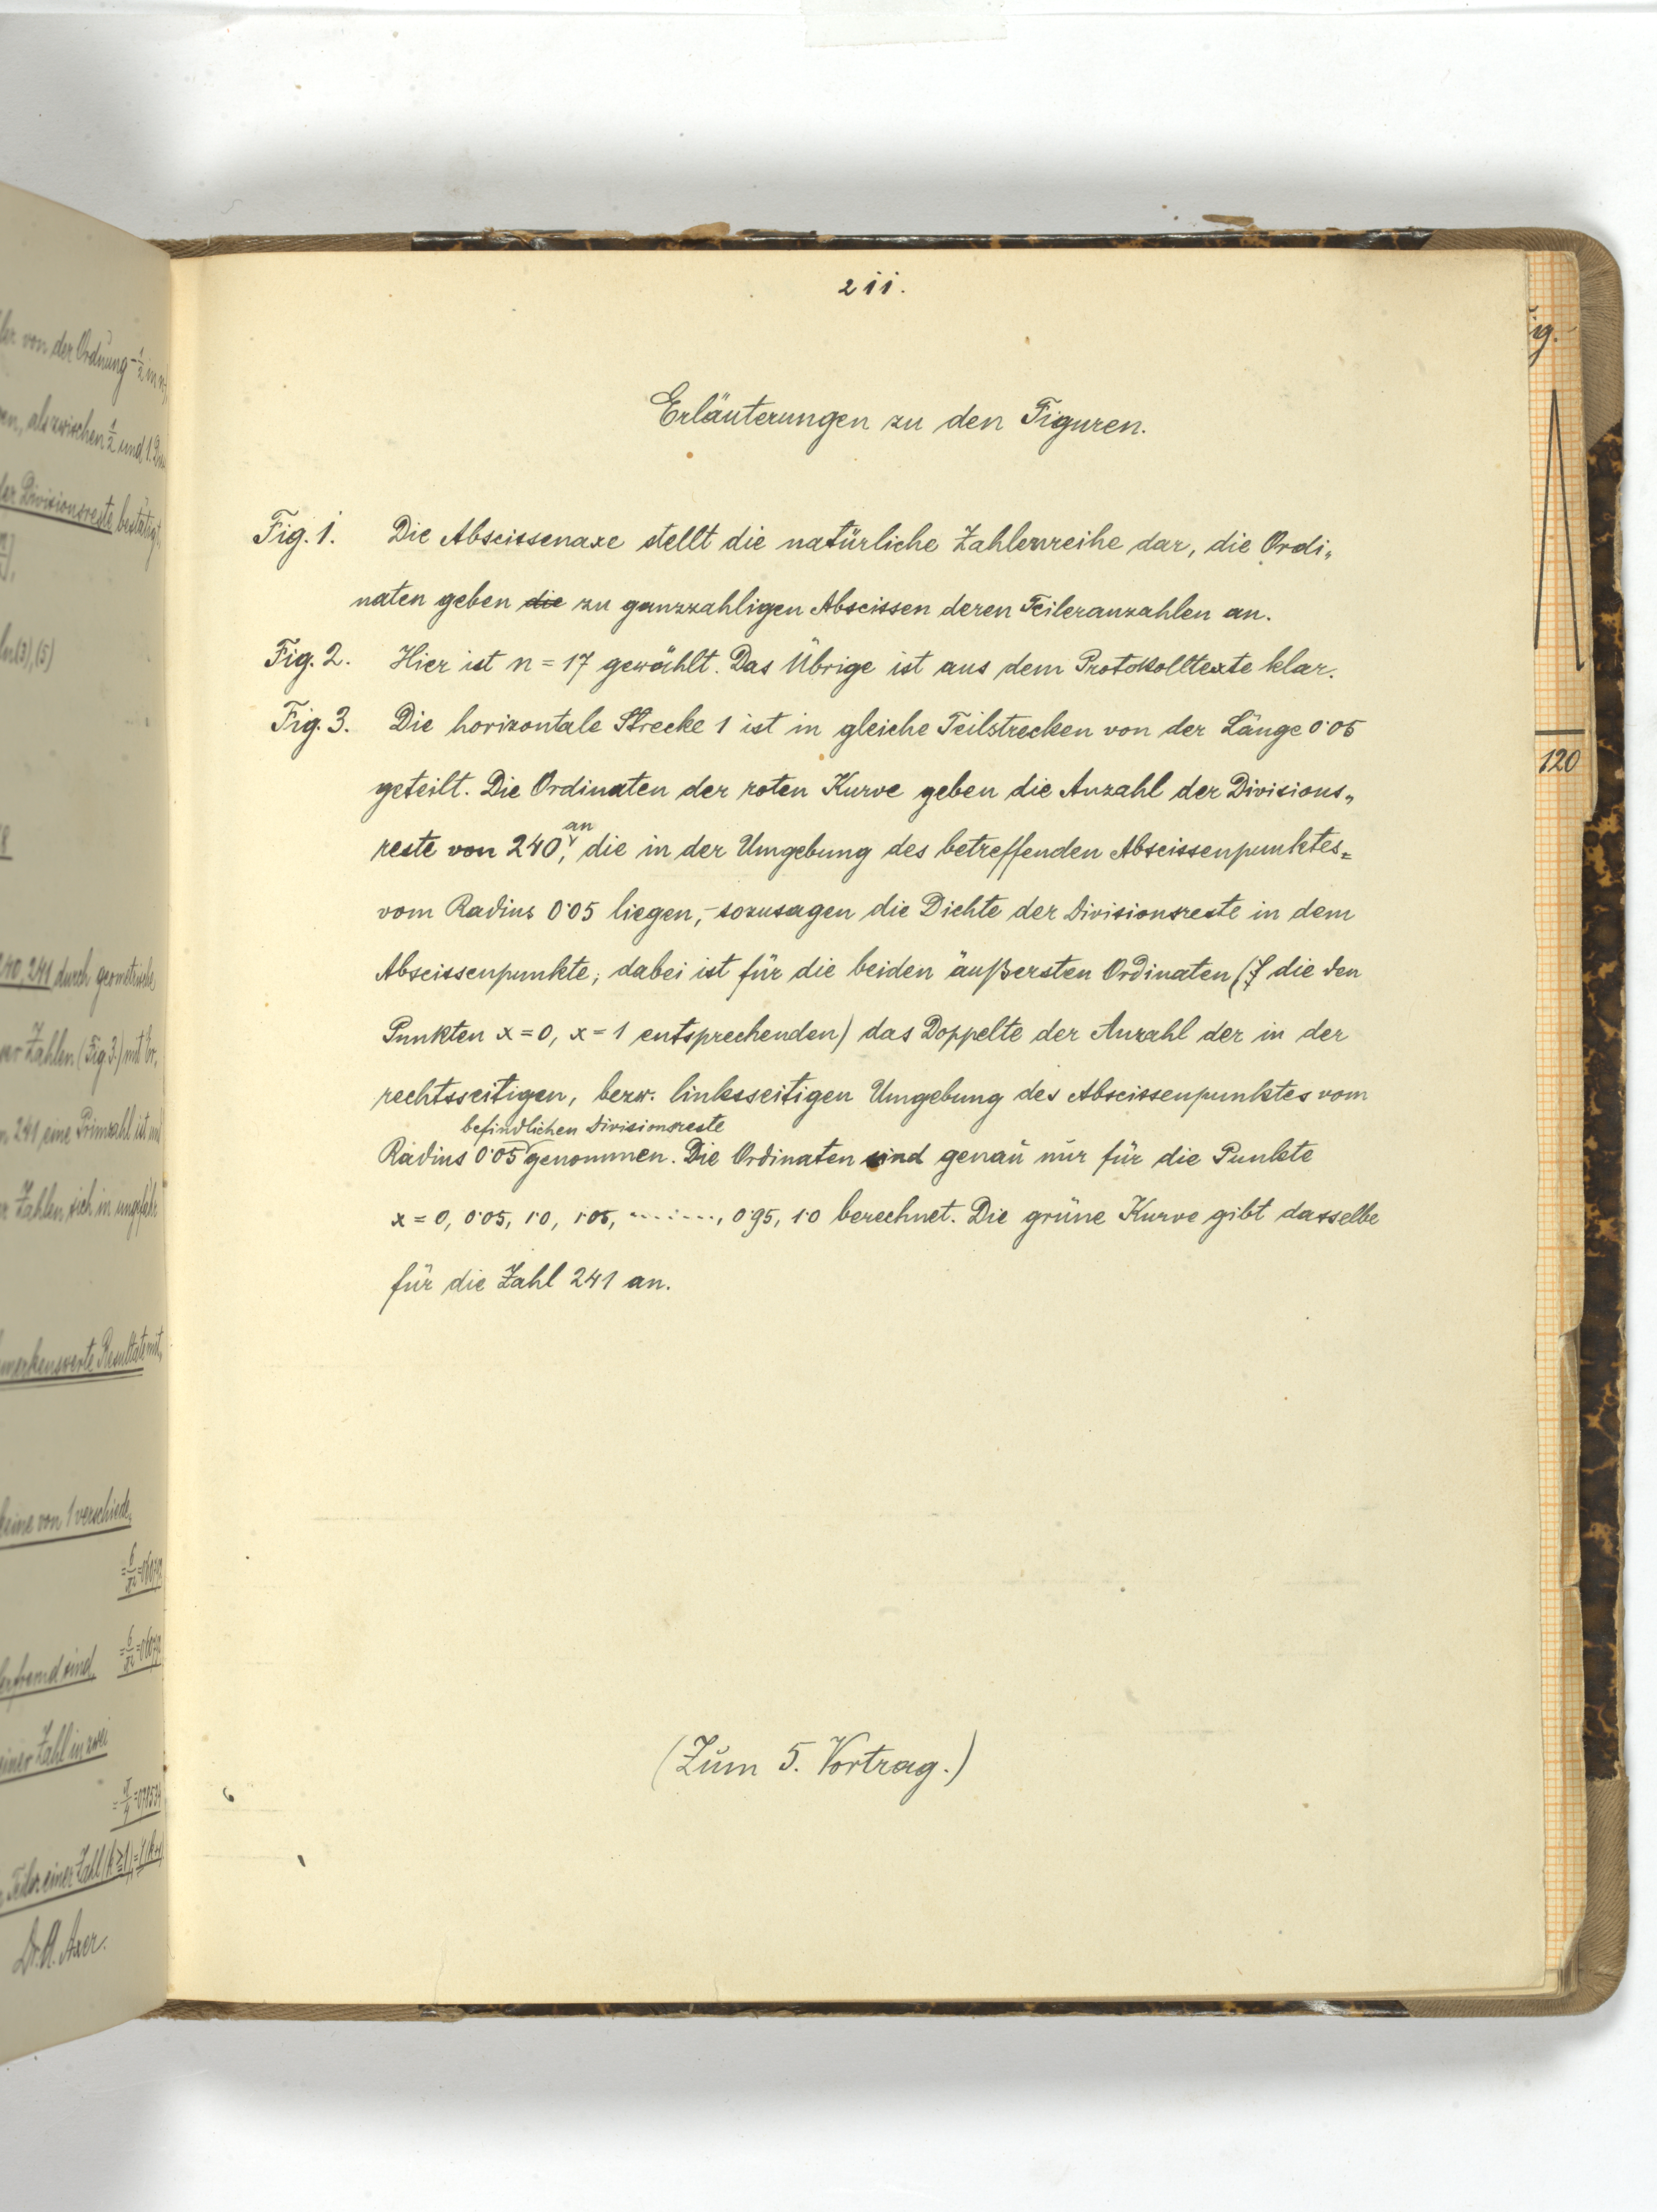 ler von der Ordnung - 1/2 in n
en, als zwischen 1/2 und 1. Die
der Divisionsreste bestätigt
(3), (5)
240, 241 durch geometrische
er Zahlen (Fig 3.) mit Er„
241 eine Primzahl ist und
er Zahlen sich in ungefähr
merkenswerte Resultate mit
keine von 1 verschiede„
= 6/π² = 0'6079
fremd sind = 6/π² = 0'6079
einer Zahl in zwei
= π/4 = 0'7854
Teiler einer Zahl (k ≥ 1) = 1/(k+1)
Dr. A. Axer.
211.
Erläuterungen zu den Figuren.
Fig. 1. Die Abscissenaxe stellt die natürliche Zahlenreihe dar, die Ordi„
naten geben die zu ganzzahligen Abscissen deren Teileranzahlen an.
Fig. 2. Hier ist n = 17 gewählt. Das Übrige ist aus dem Protokolltexte klar.
Fig. 3. Die horizontale Strecke 1 ist in gleiche Teilstrecken von der Länge 0'05
geteilt. Die Ordinaten der roten Kurve geben die Anzahl der Divisions„
reste von 240 an, die in der Umgebung des betreffenden Abscissenpunktes=
vom Radius 0'05 liegen, - sozusagen die Dichte der Divisionsreste in dem
Abscissenpunkte; dabei ist für die beiden äußersten Ordinaten (die den
Punkten x = 0, x = 1 entsprechenden) das Doppelte der Anzahl der in der
rechtsseitigen, bezw. linksseitigen Umgebung des Abscissenpunktes vom
befindlichen Divisionsreste
Radius 0'05 genommen. Die Ordinaten sind genau nur für die Punkte
x = 0, 0'05, 1'0, 1'05, ........, 0'95, 1'0 berechnet. Die grüne Kurve gibt dasselbe
für die Zahl 241 an.
(Zum 5. Vortrag.)
ig.
120